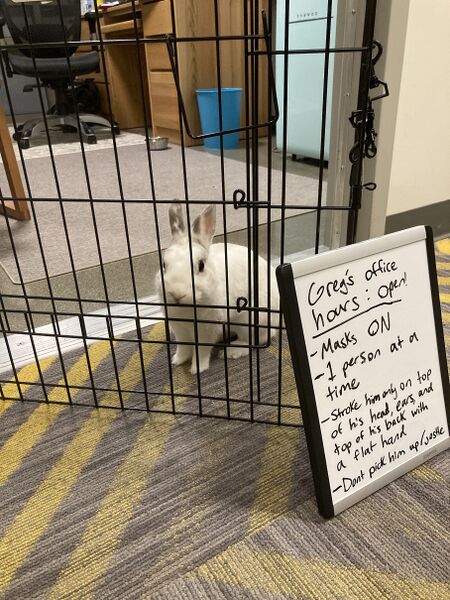 Greg's office
hours: Open!
- Masks ON
- 1 person at a
time
- Stroke him only on top
of his head, ears, and
top of his back with
a flat hand
- Dont pick him up/jostle